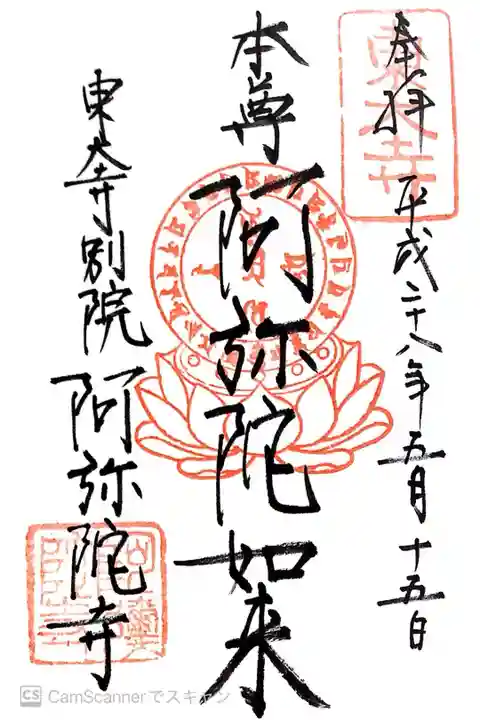 奉拝 平成二十八年五月十五日
東大寺
本尊 阿弥陀如来
東大寺別院 阿弥陀寺
CS CamScannerでスキャン